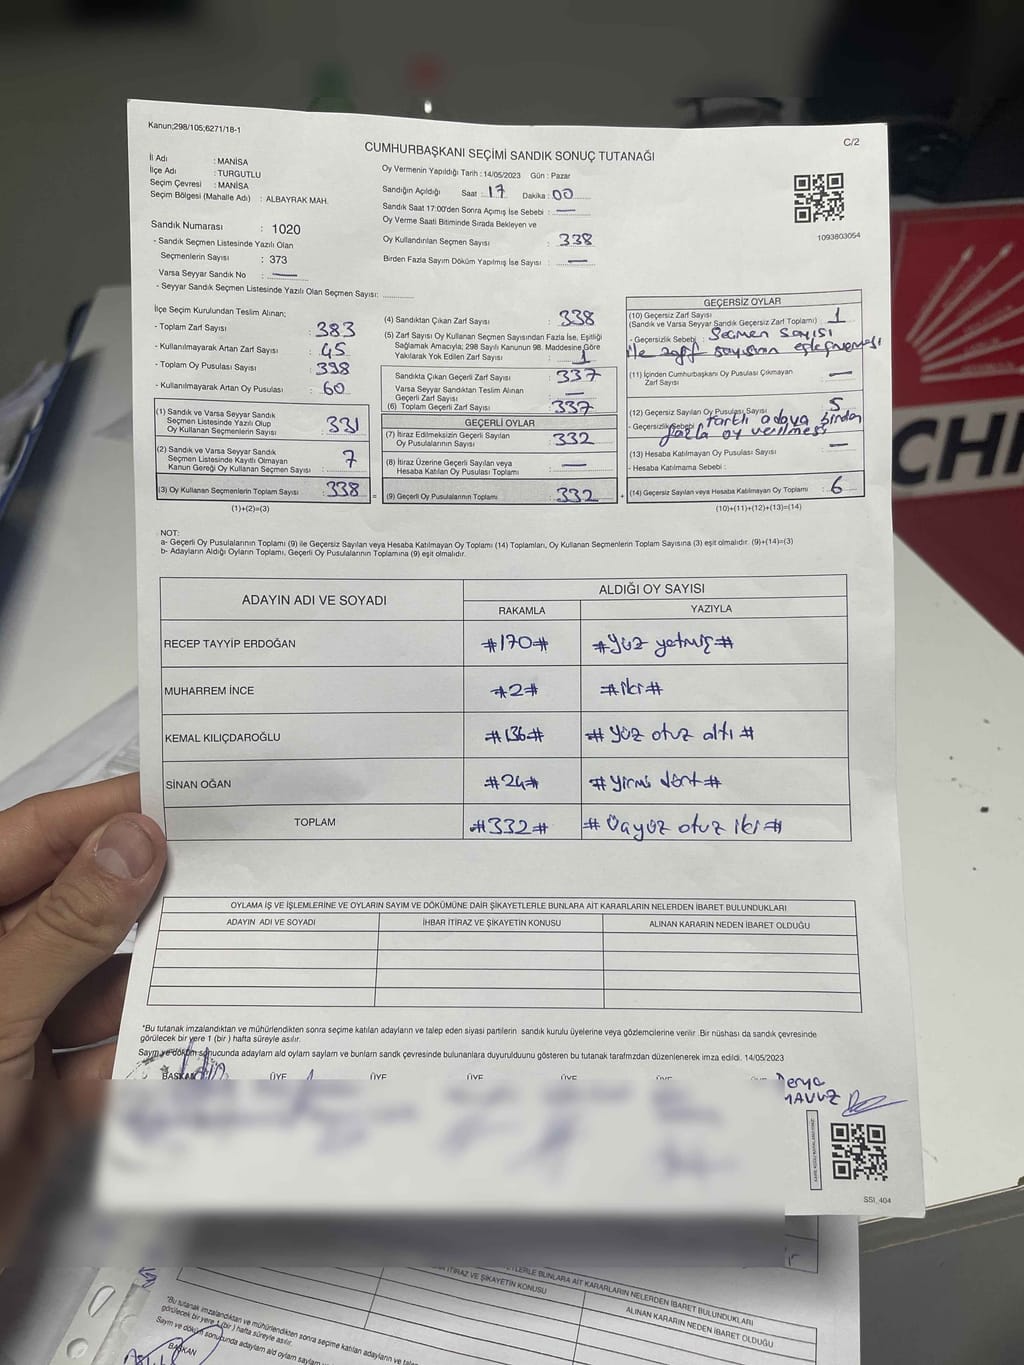 Kanun;298/105;6271/18-1
C/2
CUMHURBAŞKANI SEÇİMİ SANDIK SONUÇ TUTANAĞI
İl Adı : MANİSA
İlçe Adı : TURGUTLU
Seçim Çevresi : MANİSA
Seçim Bölgesi (Mahalle Adı) : ALBAYRAK MAH.
Oy Vermenin Yapıldığı Tarih : 14/05/2023 Gün : Pazar
Sandığın Açıldığı Saat : 17 Dakika : 00
Sandık Saat 17:00'den Sonra Açımış İse Sebebi : —
Oy Verme Saati Bitiminde Sırada Bekleyen ve
Oy Kullandırılan Seçmen Sayısı : 338
Birden Fazla Sayım Döküm Yapılmış İse Sayısı : —
1093803054
Sandık Numarası : 1020
- Sandık Seçmen Listesinde Yazılı Olan
Seçmenlerin Sayısı : 373
Varsa Seyyar Sandık No : —
- Seyyar Sandık Seçmen Listesinde Yazılı Olan Seçmen Sayısı:
İlçe Seçim Kurulundan Teslim Alınan;
- Toplam Zarf Sayısı : 383
- Kullanılmayarak Artan Zarf Sayısı : 45
- Toplam Oy Pusulası Sayısı : 398
- Kullanılmayarak Artan Oy Pusulası : 60
(1) Sandık ve Varsa Seyyar Sandık
Seçmen Listesinde Yazılı Olup
Oy Kullanan Seçmenlerin Sayısı : 331
(2) Sandık ve Varsa Seyyar Sandık
Seçmen Listesinde Kayıtlı Olmayan
Kanun Gereği Oy Kullanan Seçmen Sayısı : 7
(3) Oy Kullanan Seçmenlerin Toplam Sayısı : 338
(1)+(2)=(3)
(4) Sandıktan Çıkan Zarf Sayısı : 338
(5) Zarf Sayısı Oy Kullanan Seçmen Sayısından Fazla İse, Eşitliği
Sağlamak Amacıyla; 298 Sayılı Kanunun 98. Maddesine Göre
Yakılarak Yok Edilen Zarf Sayısı : 1
Sandıkta Çıkan Geçerli Zarf Sayısı : 337
Varsa Seyyar Sandıktan Teslim Alınan
Geçerli Zarf Sayısı : —
(6) Toplam Geçerli Zarf Sayısı : 337
GEÇERLİ OYLAR
(7) İtiraz Edilmeksizin Geçerli Sayılan
Oy Pusulalarının Sayısı : 332
(8) İtiraz Üzerine Geçerli Sayılan veya
Hesaba Katılan Oy Pusulası Sayısı : —
(9) Geçerli Oy Pusulalarının Toplamı : 332
GEÇERSİZ OYLAR
(10) Geçersiz Zarf Sayısı
(Sandık ve Varsa Seyyar Sandık Geçersiz Zarf Toplamı) : 1
- Geçersizlik Sebebi : Seçmen sayısı
ile zarf sayısının eşleşmemesi
(11) İçinden Cumhurbaşkanı Oy Pusulası Çıkmayan
Zarf Sayısı : —
(12) Geçersiz Sayılan Oy Pusulası Sayısı : 5
- Geçersizlik Sebebi : farklı adaya birden
fazla oy verilmesi
(13) Hesaba Katılmayan Oy Pusulası Sayısı : —
- Hesaba Katılmama Sebebi :
(14) Geçersiz Sayılan veya Hesaba Katılmayan Oy Toplamı : 6
(10)+(11)+(12)+(13)=(14)
NOT:
a- Geçerli Oy Pusulalarının Toplamı (9) ile Geçersiz Sayılan veya Hesaba Katılmayan Oy Toplamı (14) Toplamları, Oy Kullanan Seçmenlerin Toplam Sayısına (3) eşit olmalıdır. (9)+(14)=(3)
b- Adayların Aldığı Oyların Toplamı, Geçerli Oy Pusulalarının Toplamına (9) eşit olmalıdır.
ADAYIN ADI VE SOYADI
ALDIĞI OY SAYISI
RAKAMLA YAZIYLA
RECEP TAYYİP ERDOĞAN #170# #Yüz yetmiş#
MUHARREM İNCE #2# #iki#
KEMAL KILIÇDAROĞLU #136# #Yüz otuz altı#
SİNAN OĞAN #24# #Yirmi dört#
TOPLAM #332# #Üçyüz otuz iki#
OYLAMA İŞ VE İŞLEMLERİNE VE OYLARIN SAYIM VE DÖKÜMÜNE DAİR ŞİKAYETLERLE BUNLARA AİT KARARLARIN NELERDEN İBARET BULUNDUKLARI
ADAYIN ADI VE SOYADI İHBAR İTİRAZ VE ŞİKAYETİN KONUSU ALINAN KARARIN NEDEN İBARET OLDUĞU
"Bu tutanak imzalandıktan ve mühürlendikten sonra seçime katılan adayların ve talep eden siyasi partilerin sandık kurulu üyelerine veya gözlemcilerine verilir .Bir nüshası da sandık çevresinde
görülecek bir yere 1 (bir ) hafta süreyle asılır.
Sayım ve döküm sonucunda adayların ald oyların sayların ve bunların sandk çevresinde bulunanlara duyurulduunu gösteren bu tutanak tarafmzdan düzenlenerek imza edildi. 14/05/2023
BAŞKAN ÜYE ÜYE ÜYE ÜYE
Derya
SSI_404
CHP
İTİRAZ VE ŞİKAYETİN KONUSU
ETLERLE BUNLARA AİT KARARLARIN NELERDEN İBARET BULUNDUKLARI
ALINAN KARARIN NEDEN İBARET OLDUĞU
"Bu tutanak imzalandıktan ve mühürlendikten sonra seçime katılan adayların ve talep
görülecek bir yere 1 (bir ) hafta süreyle asılır.
Sayım ve döküm sonucunda adayların ald oyların
BAŞKAN